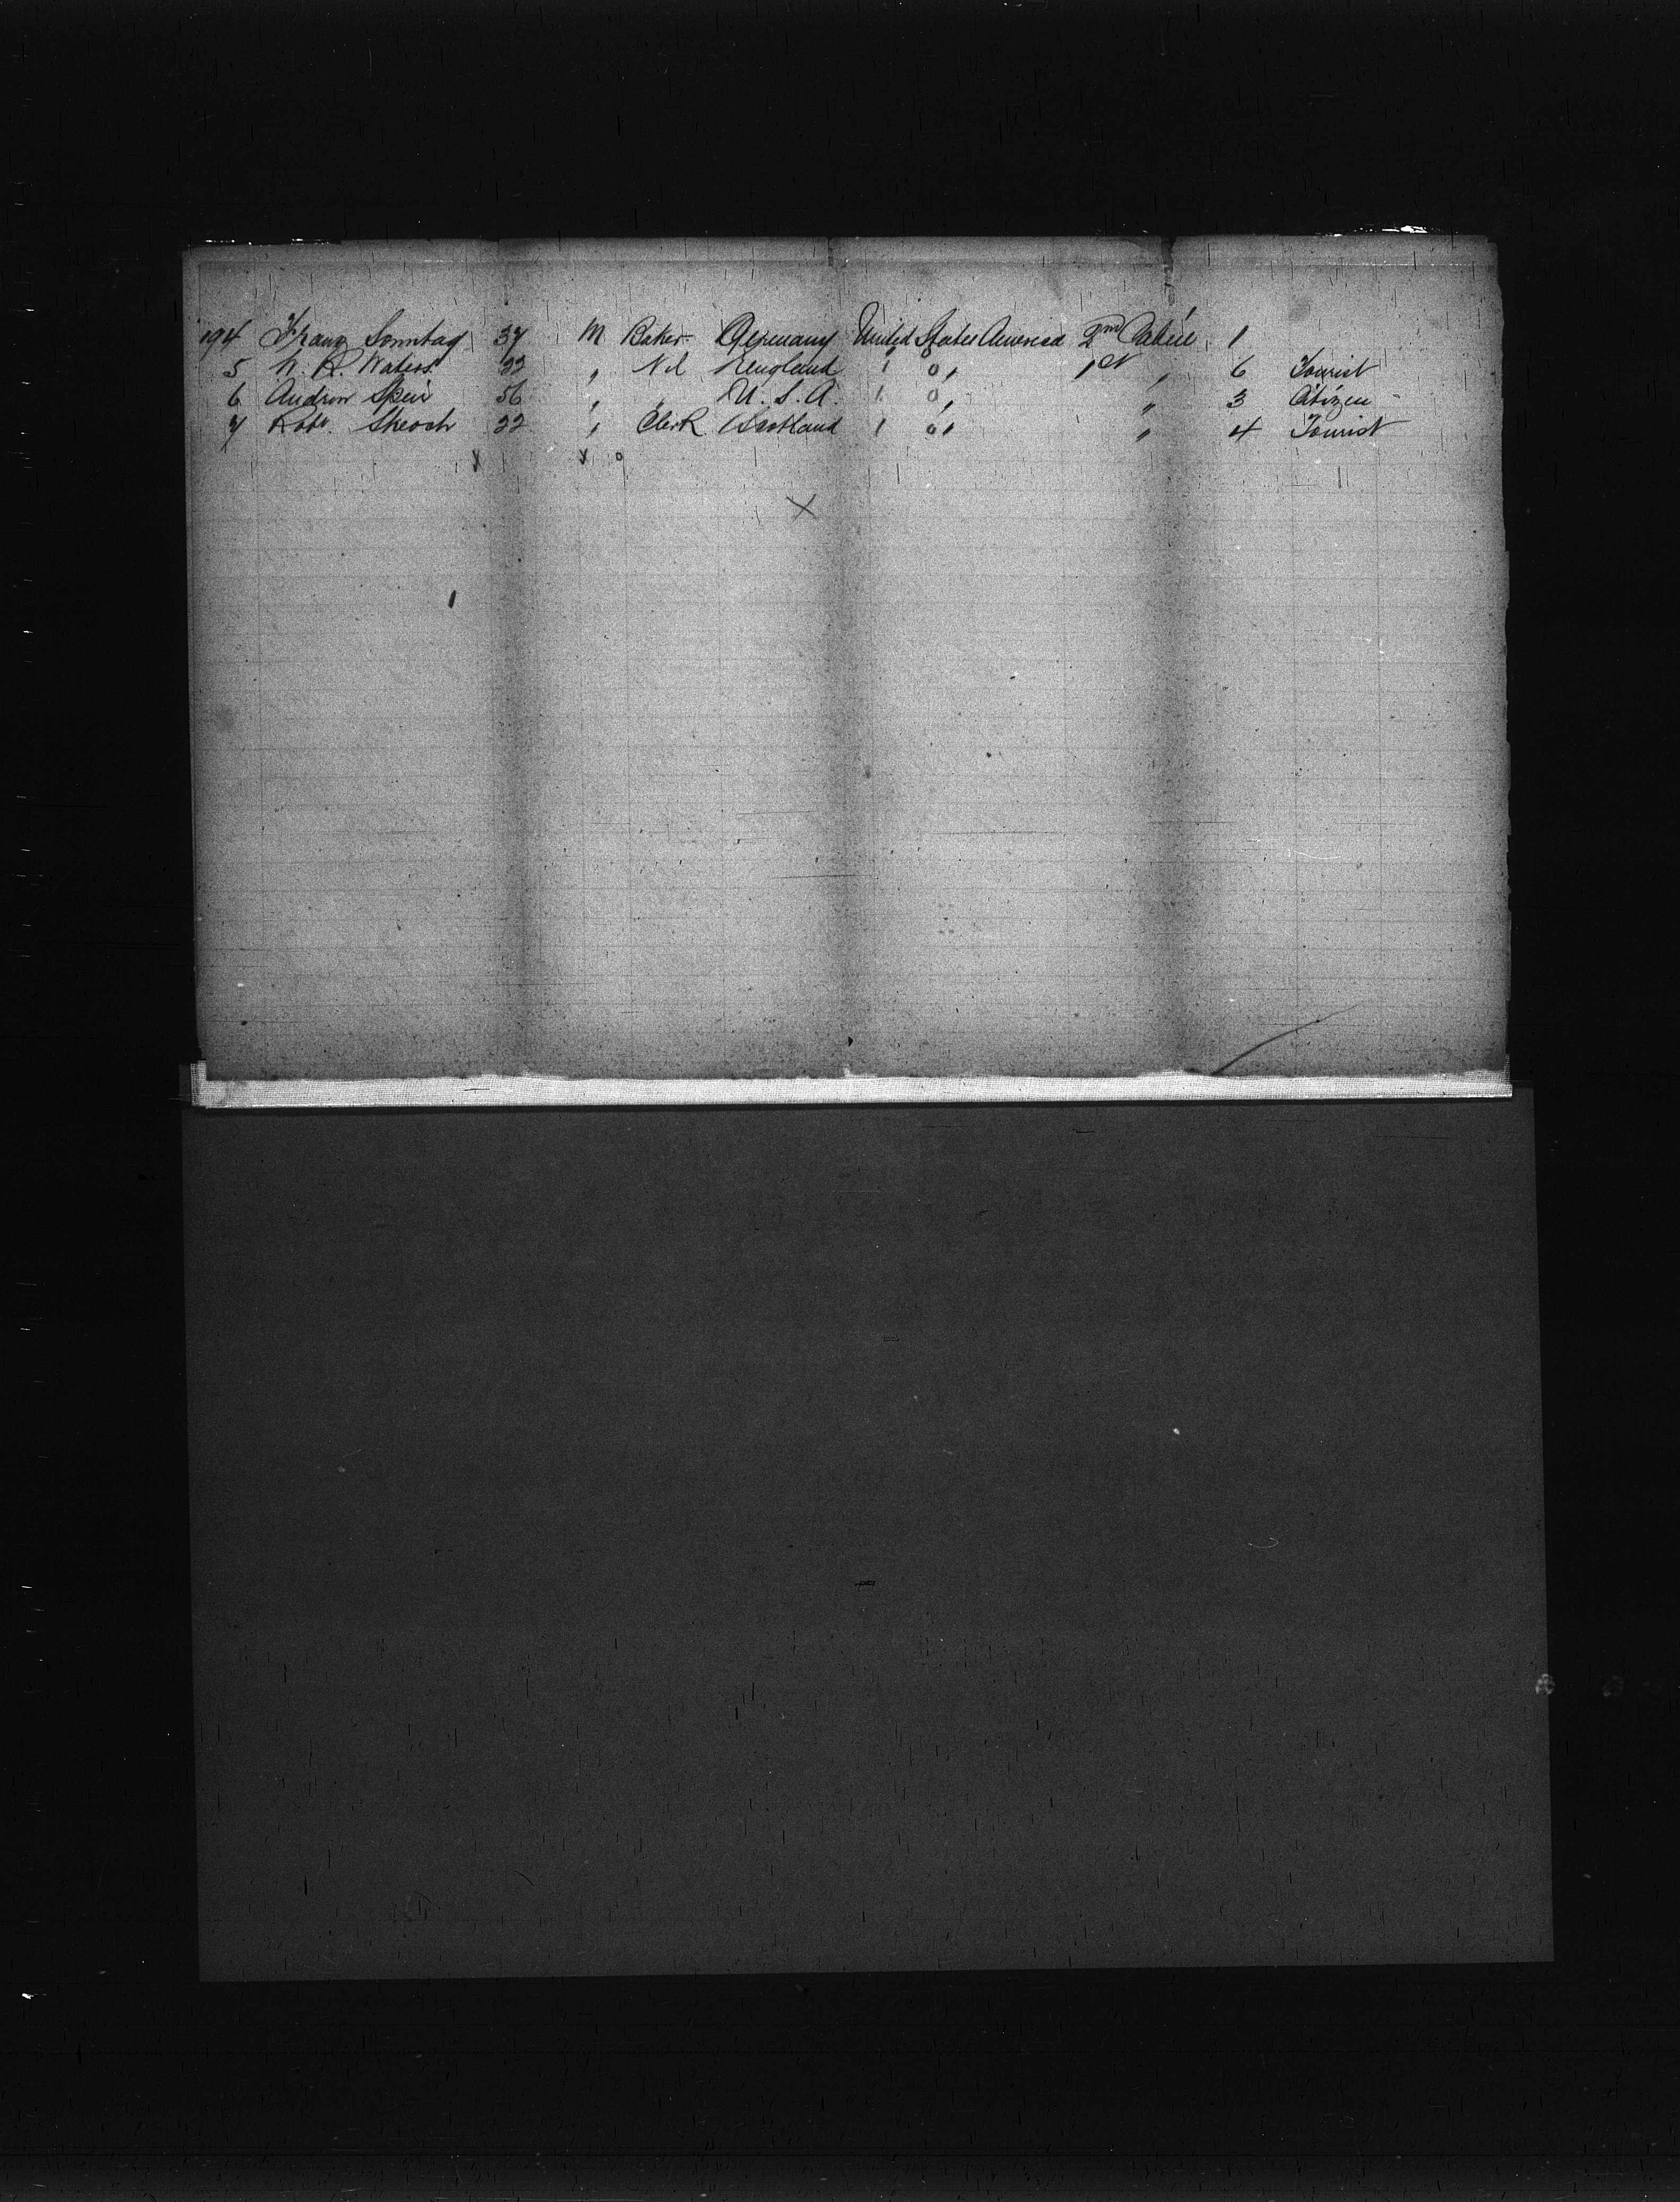 194 Franz Sonntag 37 M Baker Germany United States America 2nd Cabin 1
5 W. R. Waters 22 " Nil England " " " 1st " 6 Tourist
6 Andrew Speir 56 " " U.S.A. " " " " 3 Citizen
7 Robt. Sheoch 22 " Clerk Scotland " " " " 4 Tourist